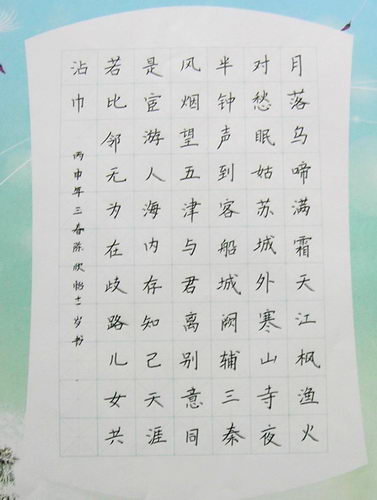 月落乌啼满霜天江枫渔火
对愁眠姑苏城外寒山寺夜
半钟声到客船城阙辅三秦
风烟望五津与君离别意同
是宦游人海内存知己天涯
若比邻无为在歧路儿女共
沾巾
丙申年三春陈欣怡十一岁书